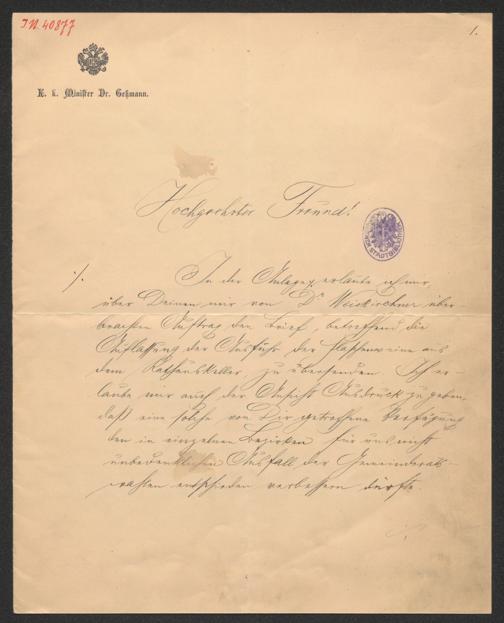 I.N. 40877
1.
K. k. Minister Dr. Geßmann.
Hochgeehrter Freund!
STADTBIBLIOTHEK
./. In der Anlage erlaube ich mir,
über Deinen mir von Dr Weiskirchner über-
brachten Auftrag den Brief, betreffend die
Auflassung der Ausfuhr der Flaschenweine aus
dem Rathauskeller zu übersenden. Ich er-
laube mir auch der Ansicht Ausdruck zu geben,
daß eine solche von Dir getroffene Verfügung
den in einzelnen Bezirken für uns nicht
unbedenklichen Ausfall der Gemeinderats-
wahlen entschieden verbessern dürfte.